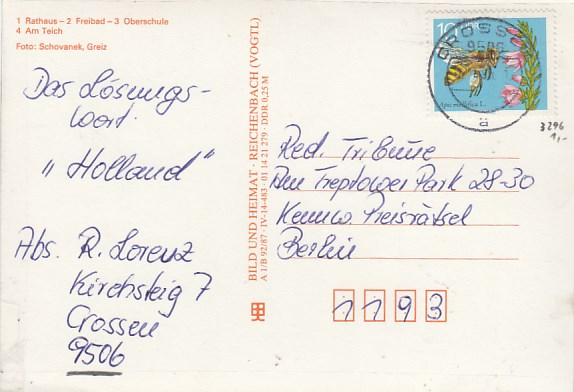 1 Rathaus – 2 Freibad – 3 Oberschule
4 Am Teich
Foto: Schovanek, Greiz
Das Lösungs-
wort.
"Holland"
Abs. R. Lorenz
Kirchsteig 7
Crossen
9506
BILD UND HEIMAT · REICHENBACH (VOGTL)
A 1/B 92/87 · IV-14-483 · 01 14 21 279 · DDR 0,25 M
10
Apis mellifica L.
CROSSEN
9506
a
3296
1,-
Red. Tribüne
Am Treptower Park 28-30
Kennw. Preisrätsel
Berlin
1193